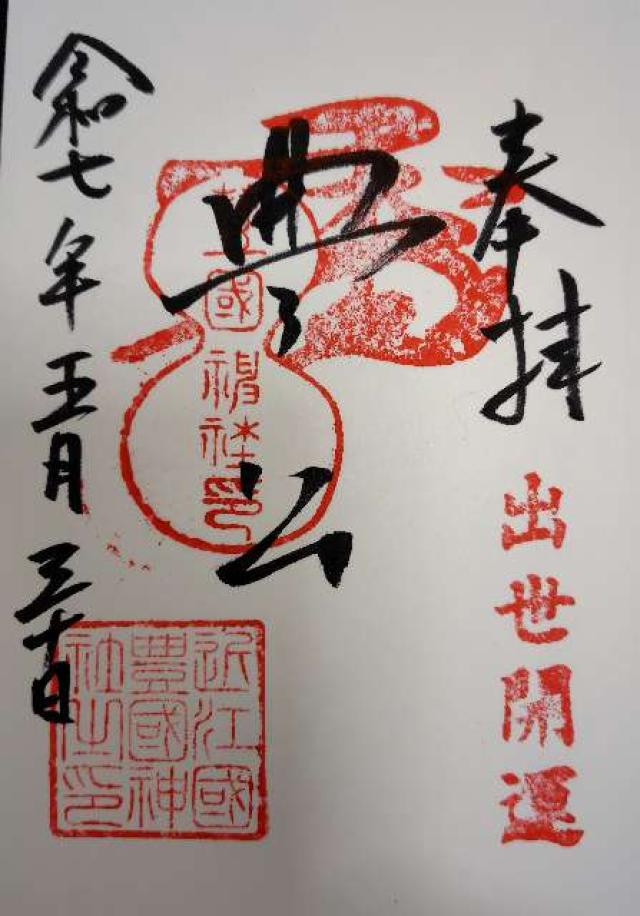 奉拝
出世開運
豊公
豊國神社印
近江國
豊國神
社之印
令和七年五月三十日